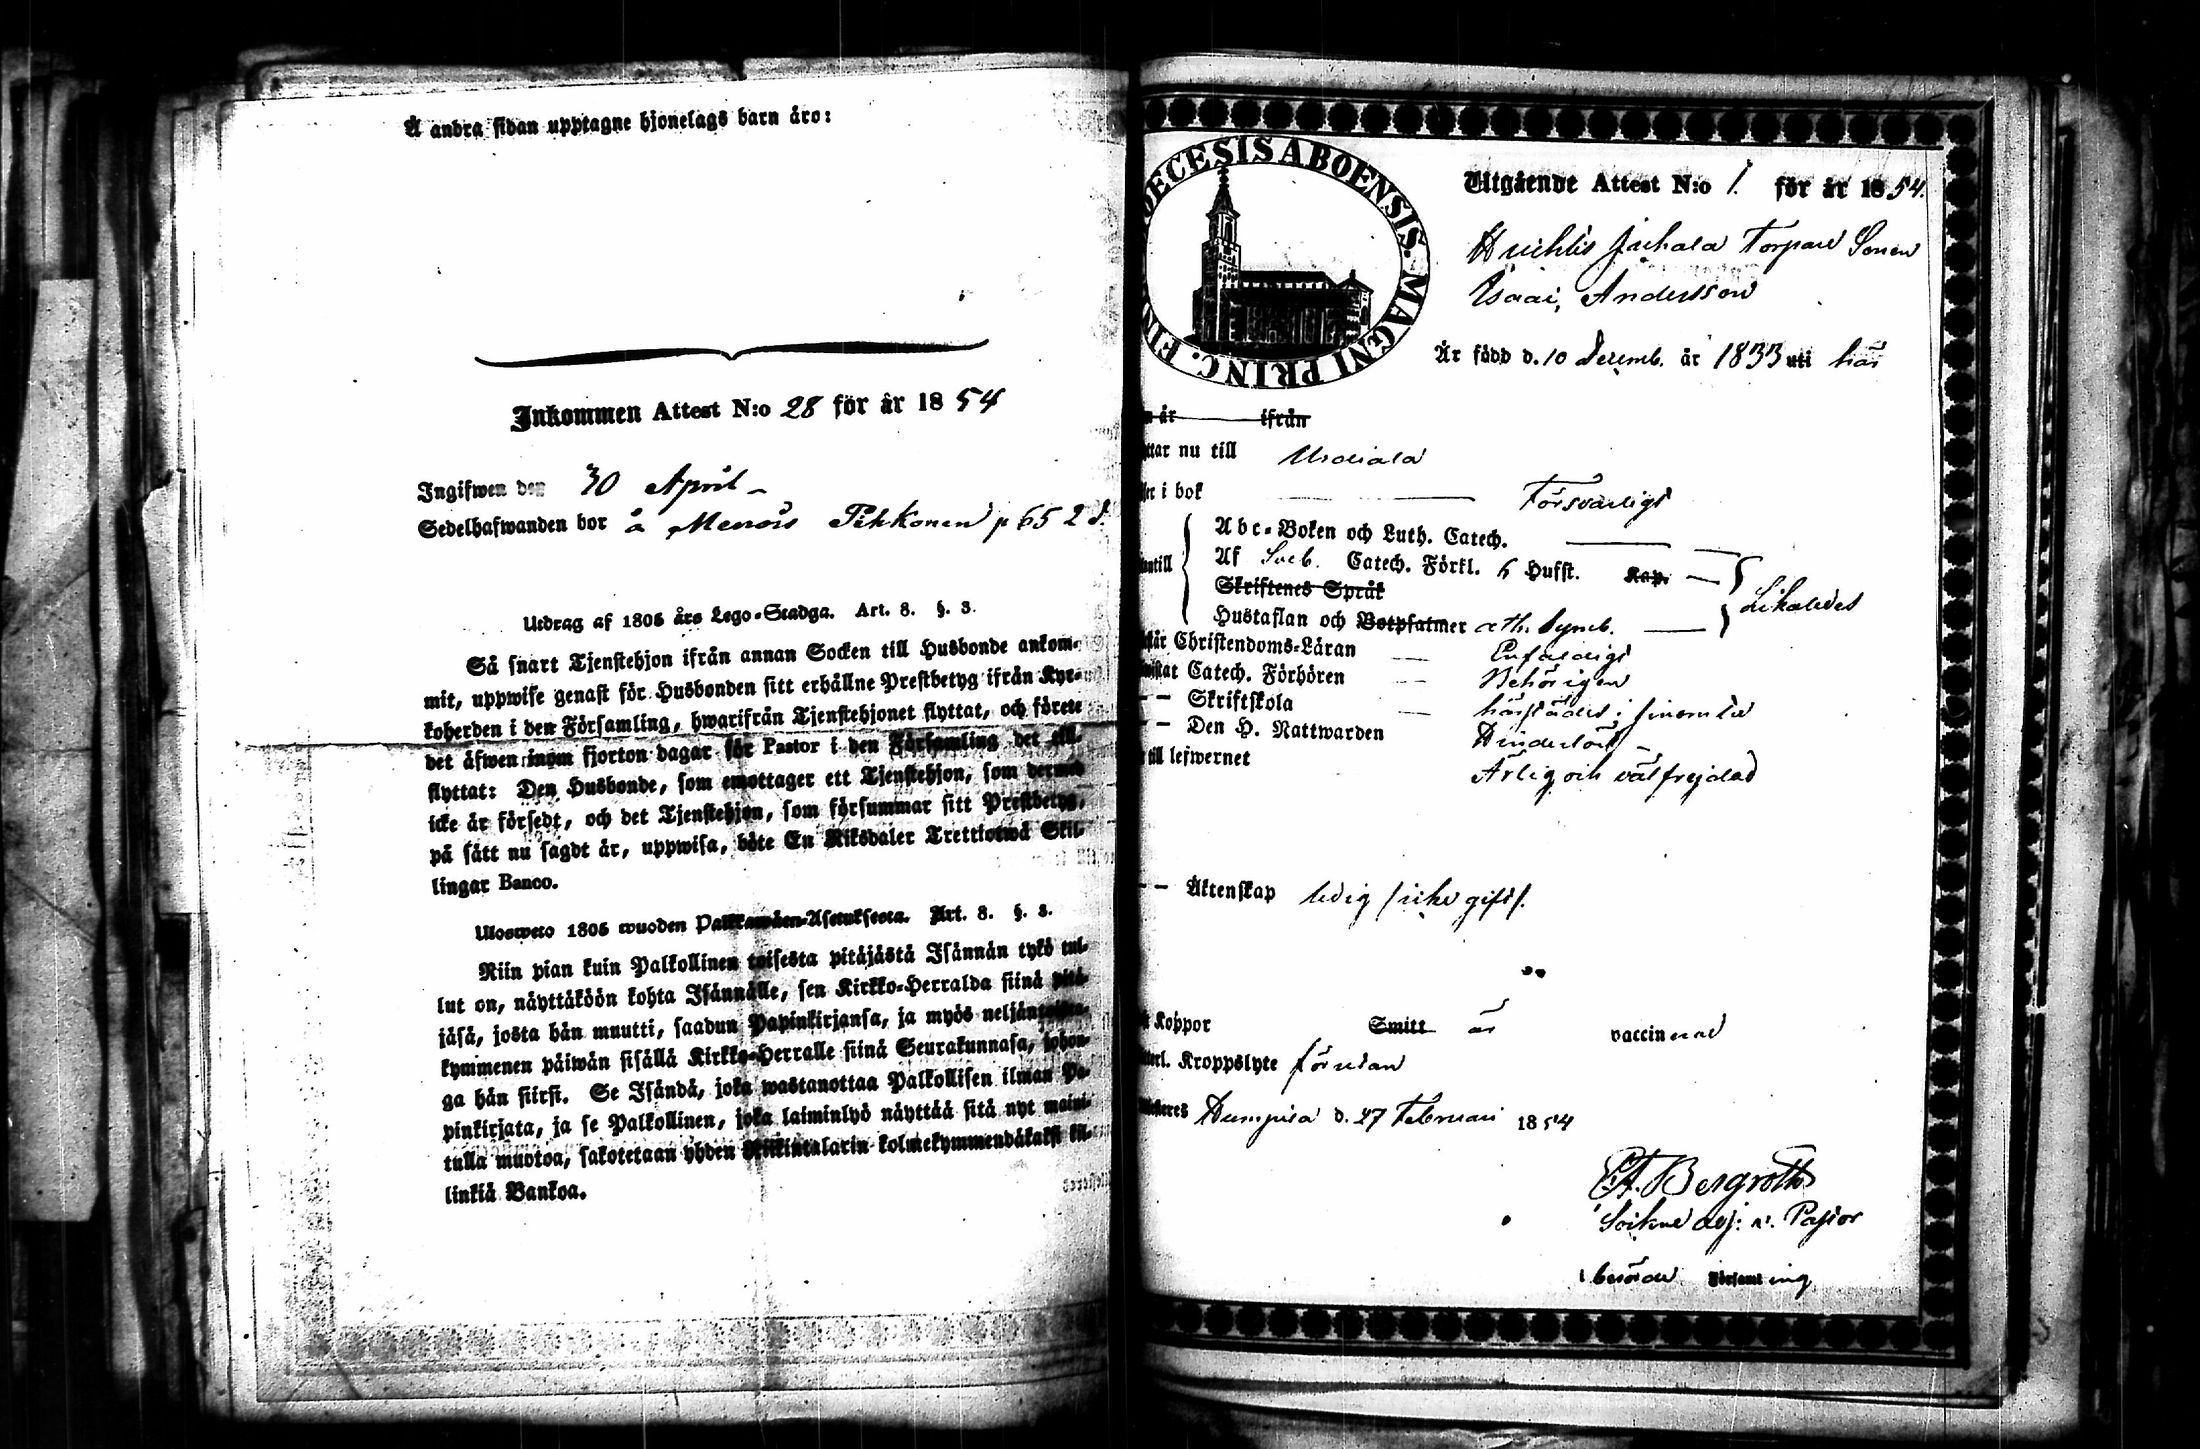 Å andra sidan upptagne hjonelags barn äro:
Inkommen Attest N:o 28 för år 1854
Ingifwen den 30 April
Sedelhafwanden bor å Menois Pekkonen p 652 d.
Utdrag af 1805 års Lego-Stadga. Art. 8. §. 3.
Så snart Tjenstehjon ifrån annan Socken till Husbonde ankom-
mit, uppwise genast för Husbonden sitt erhållne Prestbetyg ifrån Kyr-
koherden i den Församling, hwarifrån Tjenstehjonet flyttat, och förete
det äfwen inom fjorton dagar för Pastor i den Församling det till-
flyttat: Den Husbonde, som emottager ett Tjenstehjon, som dermed
icke är försedt, och det Tjenstehjon, som försummar sitt Prestbetyg,
på sätt nu sagdt är, uppwisa, böte En Riksdaler Trettiotwå Skil-
lingar Banco.
Ulosweto 1805 wuoden Palkkawäen-Asetuksesta. Art. 8. §. 3.
Niin pian kuin Palkollinen toisesta pitäjästä Isännän tykö tul-
lut on, näyttäköön kohta Isännälle, sen Kirkko-Herralda siinä pitä-
jäsä, josta hän muutti, saadun Papinkirjansa, ja myös neljäntoista-
kymmenen päiwän sisällä Kirkko-Herralle siinä Seurakunnasa, johon-
ga hän siirsi. Se Isändä, joka wastanottaa Palkollisen ilman Pa-
pinkirjata, ja se Palkollinen, joka laiminlyö näyttää sitä nyt maini-
tulla muotoa, sakotetaan yhden Riikintalarin kolmekymmendäkaksi kil-
linkiä Bankoa.
DECESIS ABOENSIS. MAGNI PRINC. FIN
Utgående Attest N:o 1. för år 1854.
Huchtis Juhala Torpare Sonen
Esaai, Andersson
Är född d. 10 Decemb. år 1833 uti här
år ifrån
ttar nu till Urdiala
i bok Försvarligt
Abc-Boken och Luth. Catech.
Af Sveb. Catech. Förkl. 5 Hufst. Kap.
Skriftenes Språk
Likaledes
Hustaflan och Botpsalmer ath. Symb.
Christendoms-Läran Enfaldigt
Catech. Förhören Behörigen
— — Skriftskola härstädes
— — Den H. Nattwarden Hinderlöst
till lefwernet Ärlig och välfrejdad
— — Äktenskap ledig /icke gift/.
Koppor Smitt är vaccinerad
Kroppslyte förutan
Humpila d. 27 Februari 1854
Bergroth
Sockne adj: v. Pastor
i berörde Församling